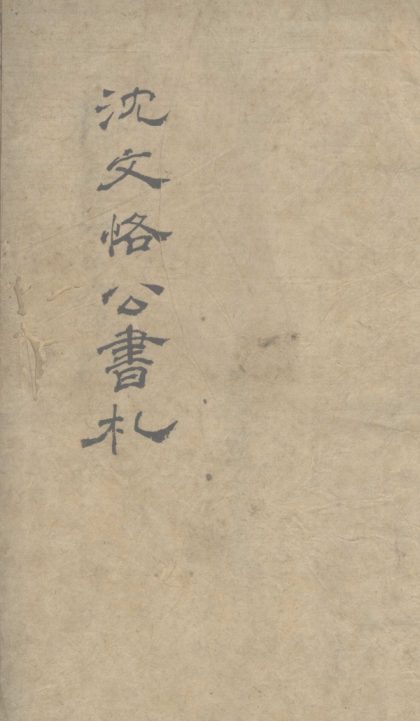 沈文恪公書札